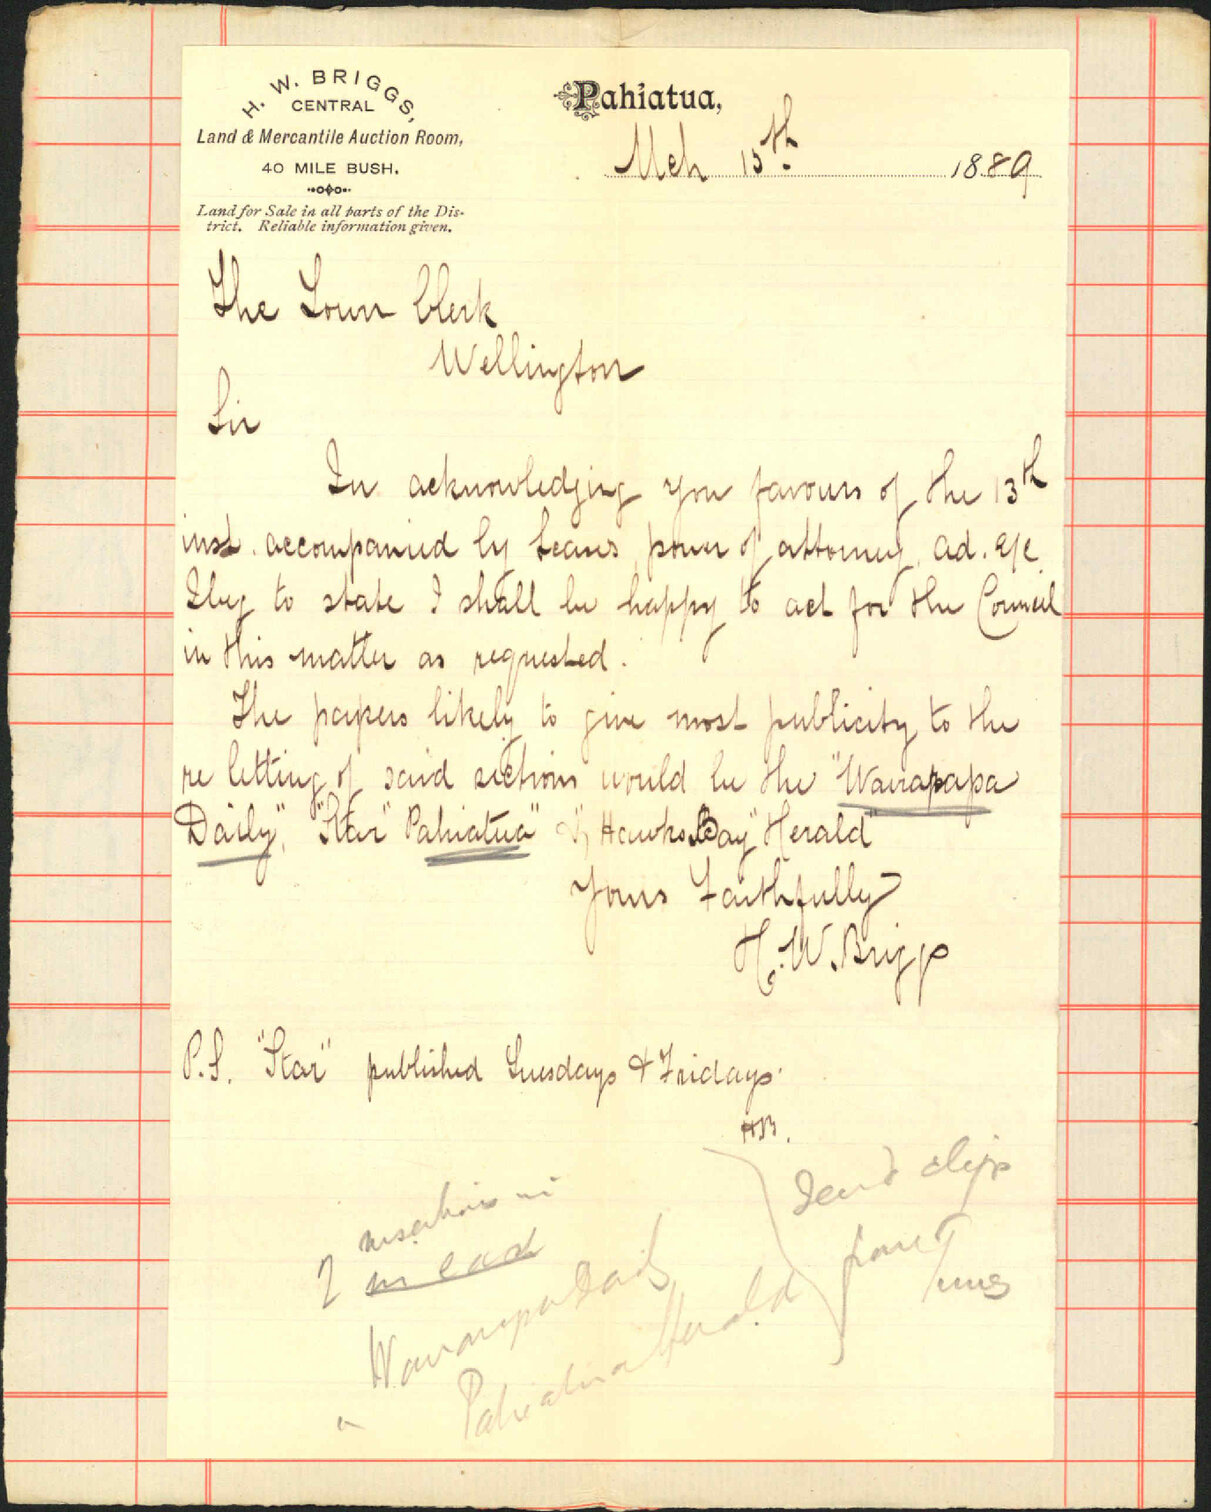 H. W. BRIGGS,
CENTRAL
Land & Mercantile Auction Room,
40 MILE BUSH.
Land for Sale in all parts of the Dis-
trict. Reliable information given.
Pahiatua,
Mch 15th 1889
The Town Clerk
Wellington
Sir
In acknowledging your favours of the 13th
inst. accompanied by leases, power of attorney, ad. &c
I beg to state I shall be happy to act for the Council
in this matter as requested.
The papers likely to give most publicity to the
re letting of said sections would be the "Wairarapa
Daily", "Star" Pahiatua" & Hawkes Bay "Herald"
Yours Faithfully
H. W. Briggs
P.S. "Star" published Tuesdays & Fridays.
HB.
2 insertions in
in each
Wairarapa Daily
" Pahiatua Herald
Send slips
from
Times